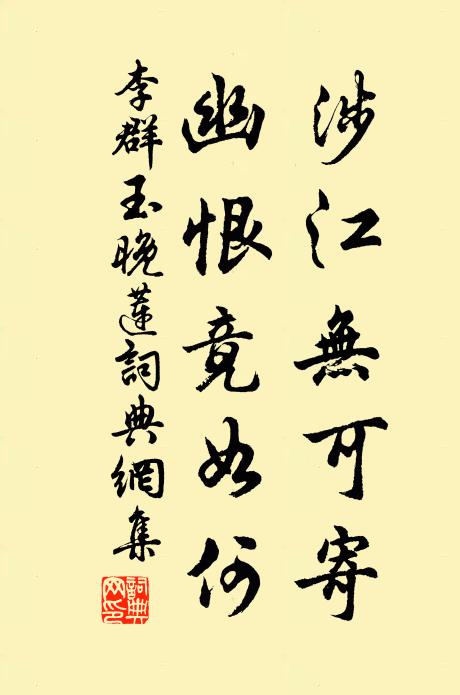 涉江無可寄
幽恨竟如何
李群玉晚蓮詞典網集
詞典網印